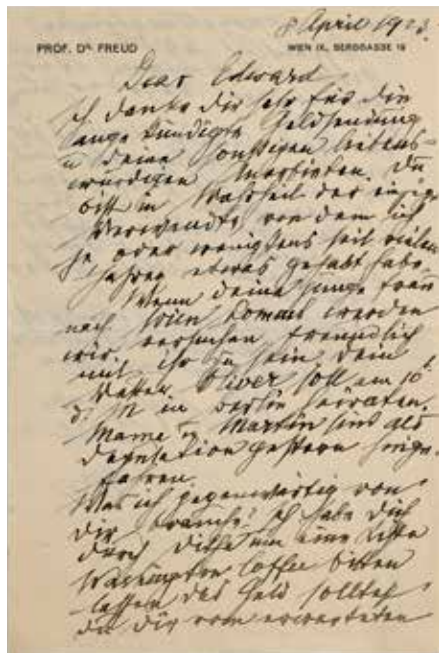 8 April 1923.
PROF. DR. FREUD
WIEN IX., BERGGASSE 19
Dear Edward
Ich danke dir sehr für die
Geldsendung
u deine sonstigen liebens-
würdigen Du
bist in Wahrheit der einzige
Verwandte von dem ich
je oder wenigstens seit vielen
Jahren etwas gehabt habe.
Wenn deine junge Frau
nach Wien kommt werden
wir versuchen freundlich
mit ihr zu sein dem
Oliver soll am 10t
d. M in Berlin heiraten.
Mama u Martin sind als
Deputation gestern hinge-
fahren.
Was ich gegenwärtig von
dir brauche? Ich habe dich
durch um eine Kiste
Coffee bitten
lassen das Geld solltest
du dir vom erwarteten